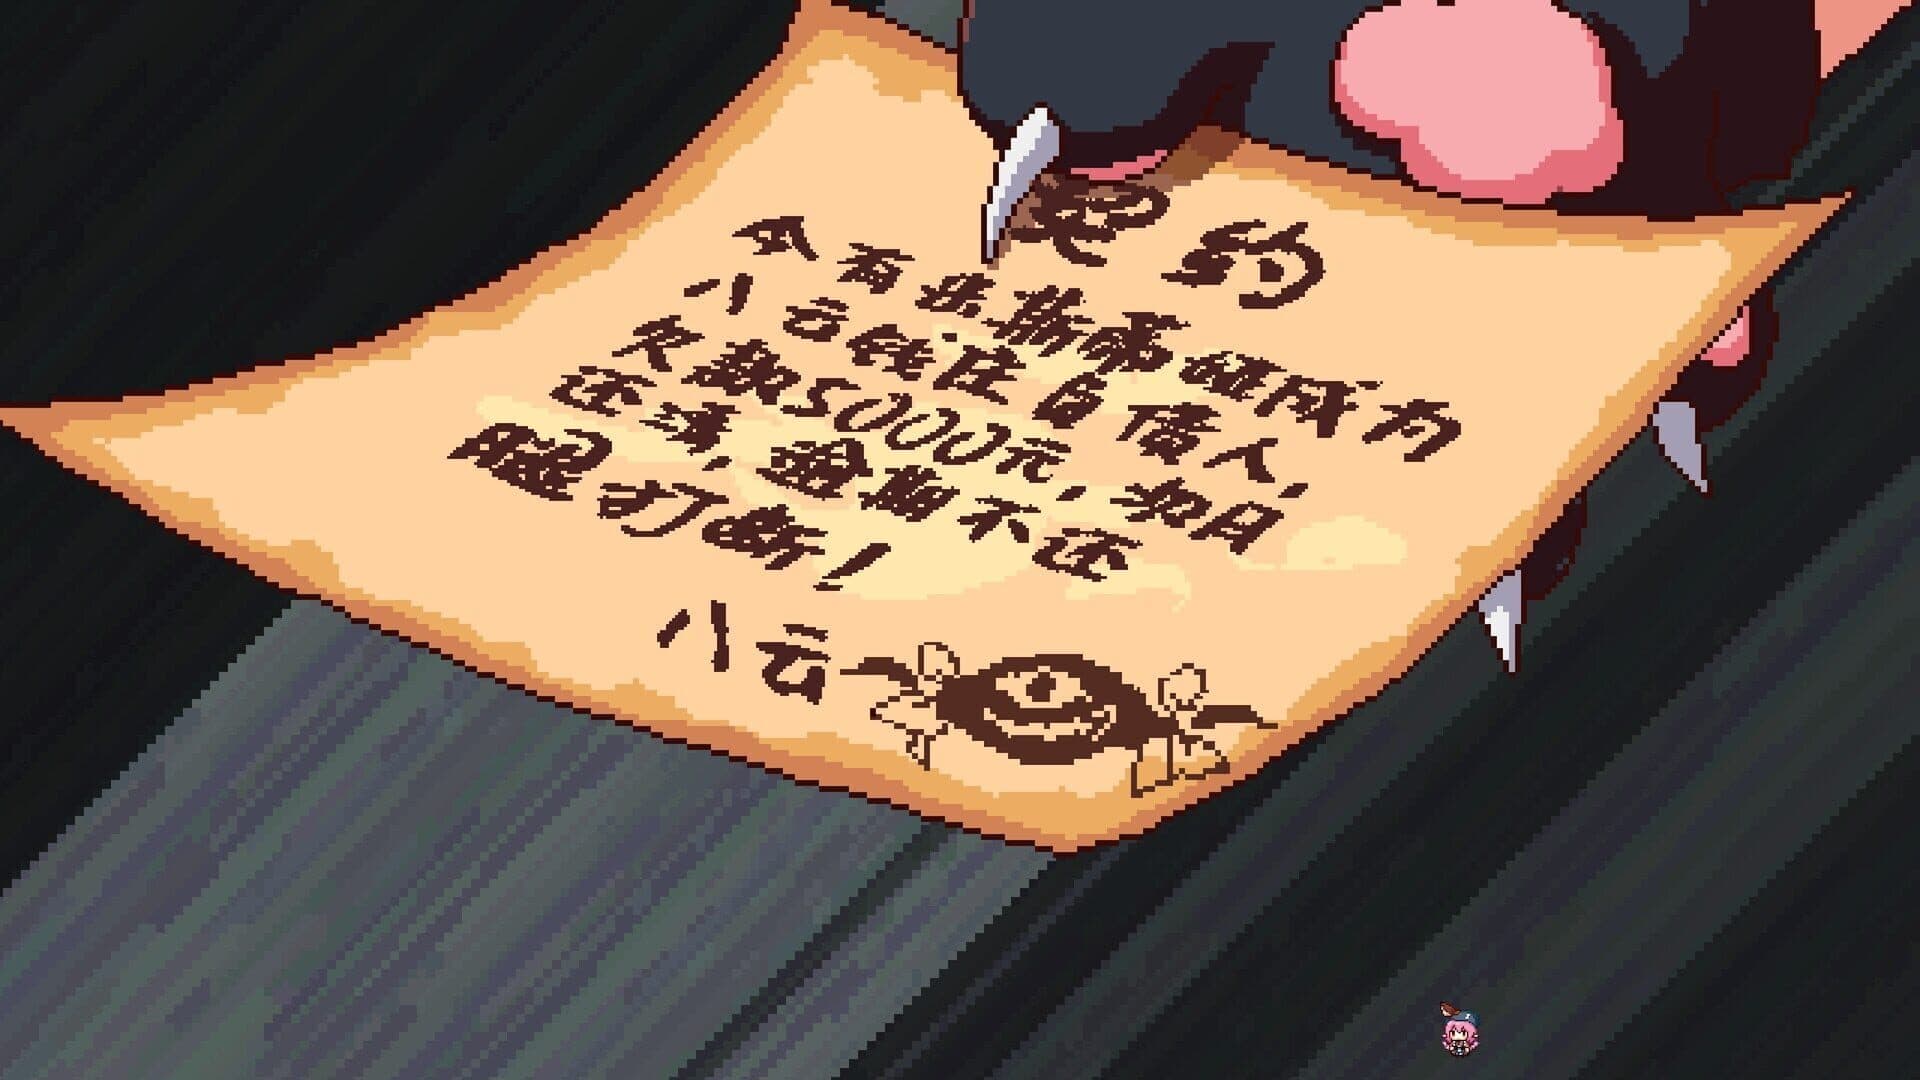 契约
今有米斯蒂娅成为
八云钱庄自借人,
欠款5000元, 日
还清, 逾期不还
腿打断!
八云